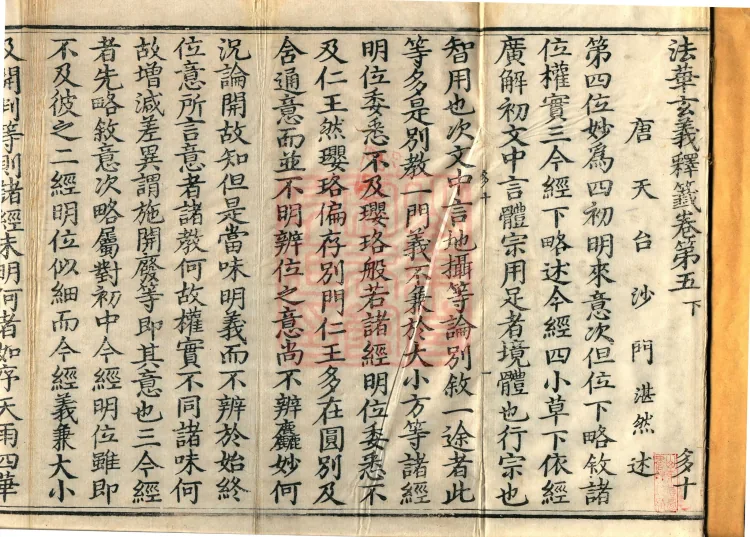 法華玄義釋籤卷第五下 多十
唐天台沙門湛然述
第四位妙爲四初明來意次但位下略敘諸
位權實三今經下略述今經四小草下依經
廣解初文中言體宗用足者境體也行宗也
智用也次文中言地攝等論別敘一途者此
等多是別教一門義不兼於大小方等諸經
明位委悉不及瓔珞般若諸經明位委悉不
及仁王然瓔珞偏存別門仁王多在圓別及
含通意而並不明辨位之意尚不辨麤妙何
況論開故知但是當味明義而不辨於始終
位意所言意者諸教何故權實不同諸味何
故增減差異謂施開廢等即其意也三今經
者先略敘意次略屬對初中今經明位雖即
不及彼之二經明位似細而今經義兼大小
及開判等則諸經未明何者如序天雨四華
多十
一